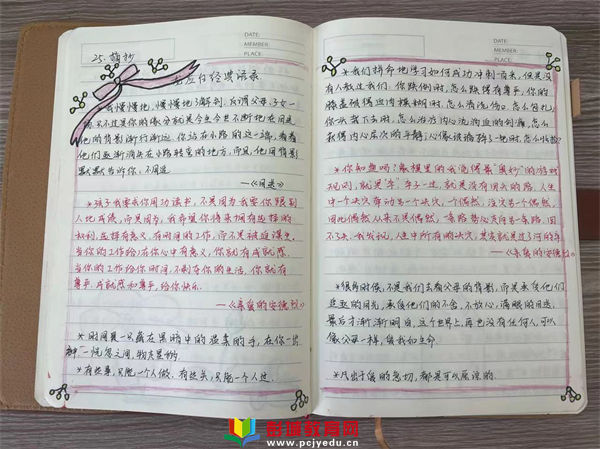 DATE:
MEMBER:
PLACE:
25. 摘抄
龙应台经典语录
*我慢慢地,慢慢地了解到,所谓父母子女一
场,只不过意味着,你和他的缘分就是今生今世不断地在目送
他的背影渐行渐远。你站在小路的这一端,看着
他们逐渐消失在小路转弯的地方,而且,他用背影
默默告诉你,不用追。
——《目送》
*孩子我要求你用功读书,不是因为我要你跟别
人比成绩,而是因为,我希望你将来拥有选择的
权利,选择有意义、有时间的工作,而不是被迫谋生。
当你的工作给你在心中有意义,你就有成就感。
当你的工作给你时间,不剥夺你的生活,你就有
尊严。成就感和尊严,给你快乐。
——《亲爱的安德烈》
*时间是一只藏在黑暗中的温柔的手,在你一出
神一恍惚之间,物走星移。
*有些事,只能一个人做。有些关,只能一个人过。
DATE:
MEMBER:
PLACE:
*我们拼命地学习如何成功冲刺一百米,但是没
有人教过我们:你跌倒时,怎么跌得有尊严;你的
膝盖破得血肉模糊时,怎么清洗伤口、怎么包扎;
你一头栽下去时,怎么治疗内心淌血的创痛,怎么
获得心灵深层的平静;心像玻璃碎了一地时,怎么收拾?
*你知道吗?象棋里的我觉得最"奥妙"的游戏
规则,就是"卒"。卒子一过河,就是没有回头的路。人生
中一个决定牵动另一个决定,一个偶然,注定另一个偶然,
因此偶然从来不是偶然,一条路势必走向另一条路,回
不了头。我发现,人生中所有的决定,其实都是过了河的卒。
——《亲爱的安德烈》
*很多时候,不是我们去看父母的背影,而是承受他们
追逐的目光,承受他们的不舍,不放心,满眼的目送。
最后才渐渐明白,这个世界上,再也没有任何人,可以
像父母一样,爱我如生命
*凡出于爱的急切,都是可以原谅的。
荆璞教育网
www.pcjyedu.cn